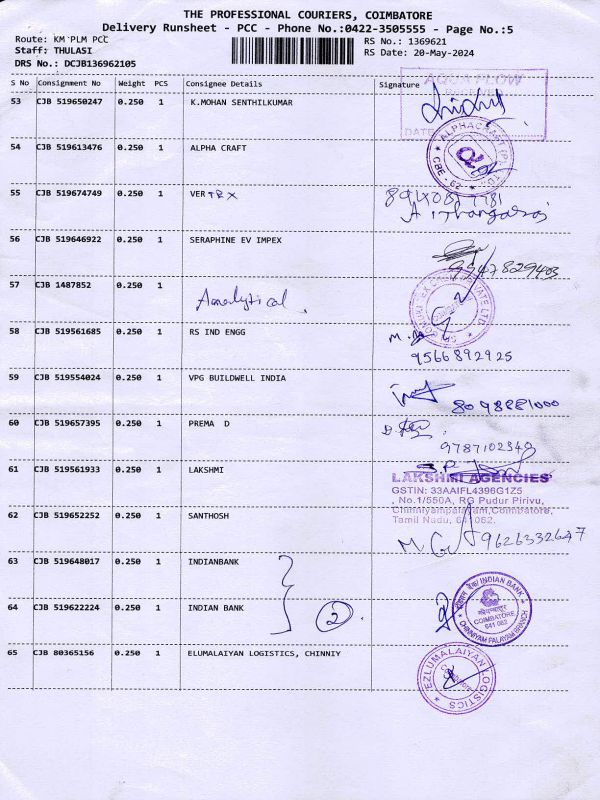 THE PROFESSIONAL COURIERS, COIMBATORE
Delivery Runsheet - PCC - Phone No.:0422-3505555 - Page No.:5
Route: KM PLM PCC
RS No.: 1369621
Staff: THULASI
RS Date: 20-May-2024
DRS No.: DCJB136962105
S No Consignment No Weight PCS Consignee Details Signature
AQUA FLOW
53 CJB 519650247 0.250 1 K.MOHAN SENTHILKUMAR
DATE
54 CJB 519613476 0.250 1 ALPHA CRAFT
ALPHACRAFT (P) LTD
CBE - 62
55 CJB 519674749 0.250 1 VERTEX
A
56 CJB 519646922 0.250 1 SERAPHINE EV IMPEX
9547829403
57 CJB 1487852 0.250 1
Analytical
58 CJB 519561685 0.250 1 RS IND ENGG
9566892925
59 CJB 519554024 0.250 1 VPG BUILDWELL INDIA
8098881000
60 CJB 519657395 0.250 1 PREMA D
9787102349
61 CJB 519561933 0.250 1 LAKSHMI
LAKSHMI AGENCIES
GSTIN: 33AAIFL4396G1Z5
, No.1/550A, RG Pudur Pirivu,
Chinniyanpalayam, Coimbatore,
Tamil Nadu, 641062.
62 CJB 519652252 0.250 1 SANTHOSH
9626332647
63 CJB 519648017 0.250 1 INDIANBANK
64 CJB 519622224 0.250 1 INDIAN BANK
2
INDIAN BANK
COIMBATORE
641 062
CHINNIYAM PALAYAM BRANCH
65 CJB 80365156 0.250 1 ELUMALAIYAN LOGISTICS, CHINNIY
EZLUMALAIYAN LOGISTICS